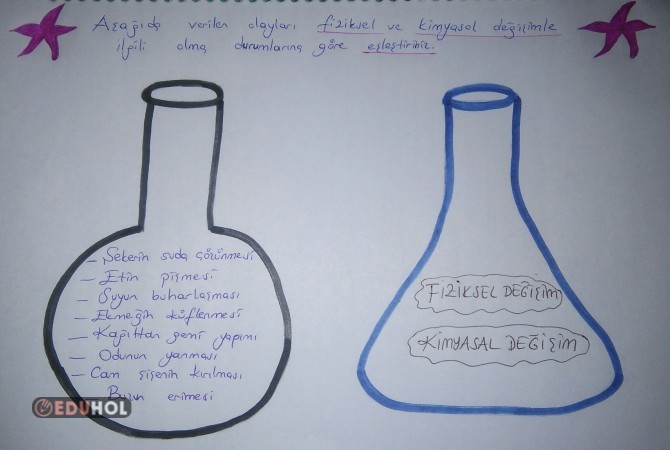 Aşağıda verilen olayları fiziksel ve kimyasal değişimle
ilgili olma durumlarına göre eşleştiriniz.
– Şekerin suda çözünmesi
– Etin pişmesi
– Suyun buharlaşması
– Ekmeğin küflenmesi
– Kağıttan gemi yapımı
– Odunun yanması
– Cam şişenin kırılması
Buzun erimesi
FİZİKSEL DEĞİŞİM
KİMYASAL DEĞİŞİM
EDUHOL